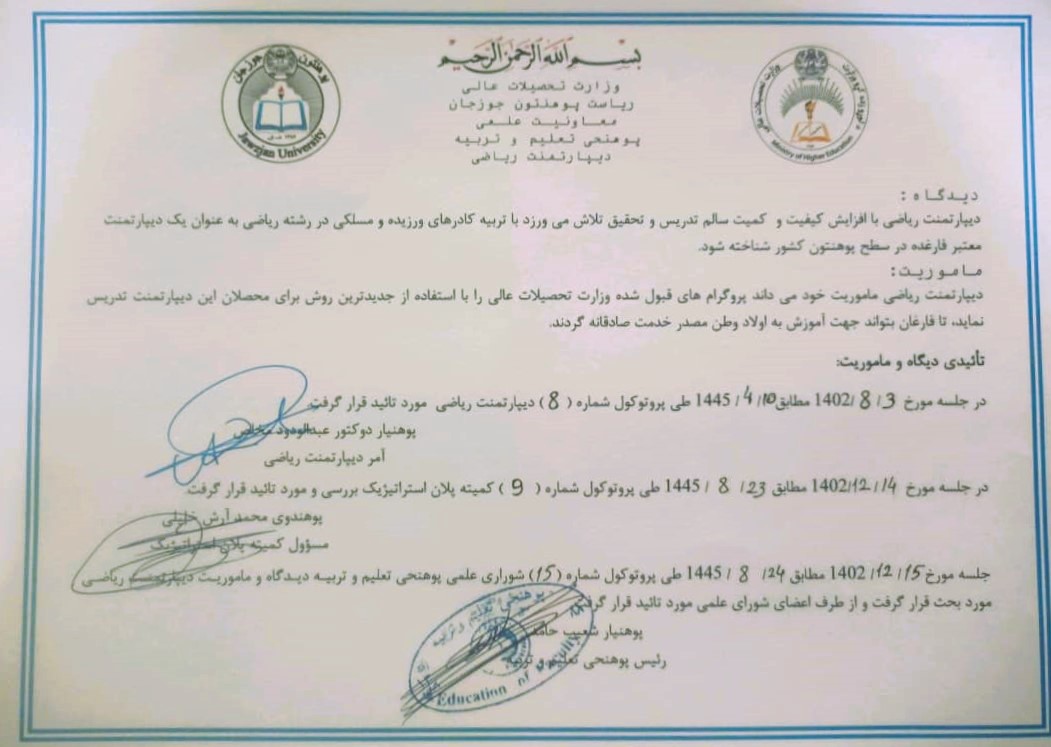 بسم الله الرحمن الرحیم
وزارت تحصیلات عالی
ریاست پوهنتون جوزجان
معاونیت علمی
پوهنحی تعلیم و تربیه
دیپارتمنت ریاضی
پوهنتون جوزجان
Jawzjan University
وزارت تحصیلات عالی
Ministry of Higher Education
دیدگاه :
دیپارتمنت ریاضی با افزایش کیفیت و کمیت سالم تدریس و تحقیق تلاش می ورزد با تربیه کادرهای ورزیده و مسلکی در رشته ریاضی به عنوان یک دیپارتمنت
معتبر فارغده در سطح پوهنتون کشور شناخته شود.
ماموریت:
دیپارتمنت ریاضی ماموریت خود می داند پروگرام های قبول شده وزارت تحصیلات عالی را با استفاده از جدیدترین روش برای محصلان این دیپارتمنت تدریس
نماید، تا فارغان بتواند جهت آموزش به اولاد وطن مصدر خدمت صادقانه گردند.
تأئیدی دیگاه و ماموریت:
در جلسه مورخ 3 / 8 /1402 مطابق 10/ 4 / 1445 طی پروتوکول شماره ( 8 ) دیپارتمنت ریاضی مورد تائید قرار گرفت.
پوهنیار دوکتور عبدالودود مخلص
آمر دیپارتمنت ریاضی
در جلسه مورخ 14 / 12 /1402 مطابق 23 / 8 / 1445 طی پروتوکول شماره ( 9 ) کمیته پلان استراتیژیک بررسی و مورد تائید قرار گرفت.
پوهندوی محمد آرش خلیلی
مسؤول کمیته پلان استراتیژیک
جلسه مورخ 15 / 12 / 1402 مطابق 24 / 8 / 1445 طی پروتوکول شماره (15) شوراری علمی پوهنحی تعلیم و تربیه دیدگاه و ماموریت دیپارتمنت ریاضی
مورد بحث قرار گرفت و از طرف اعضای شورای علمی مورد تائید قرار گرفت.
پوهنیار شعیب حامد
رئیس پوهنحی تعلیم و تربیه
پوهنحی تعلیم و تربیه
Education of Faculty